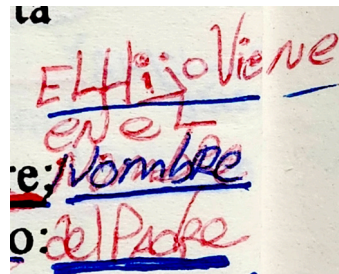 ta
EL Hijo Viene
eN eL
re; Nombre
o: del Padre